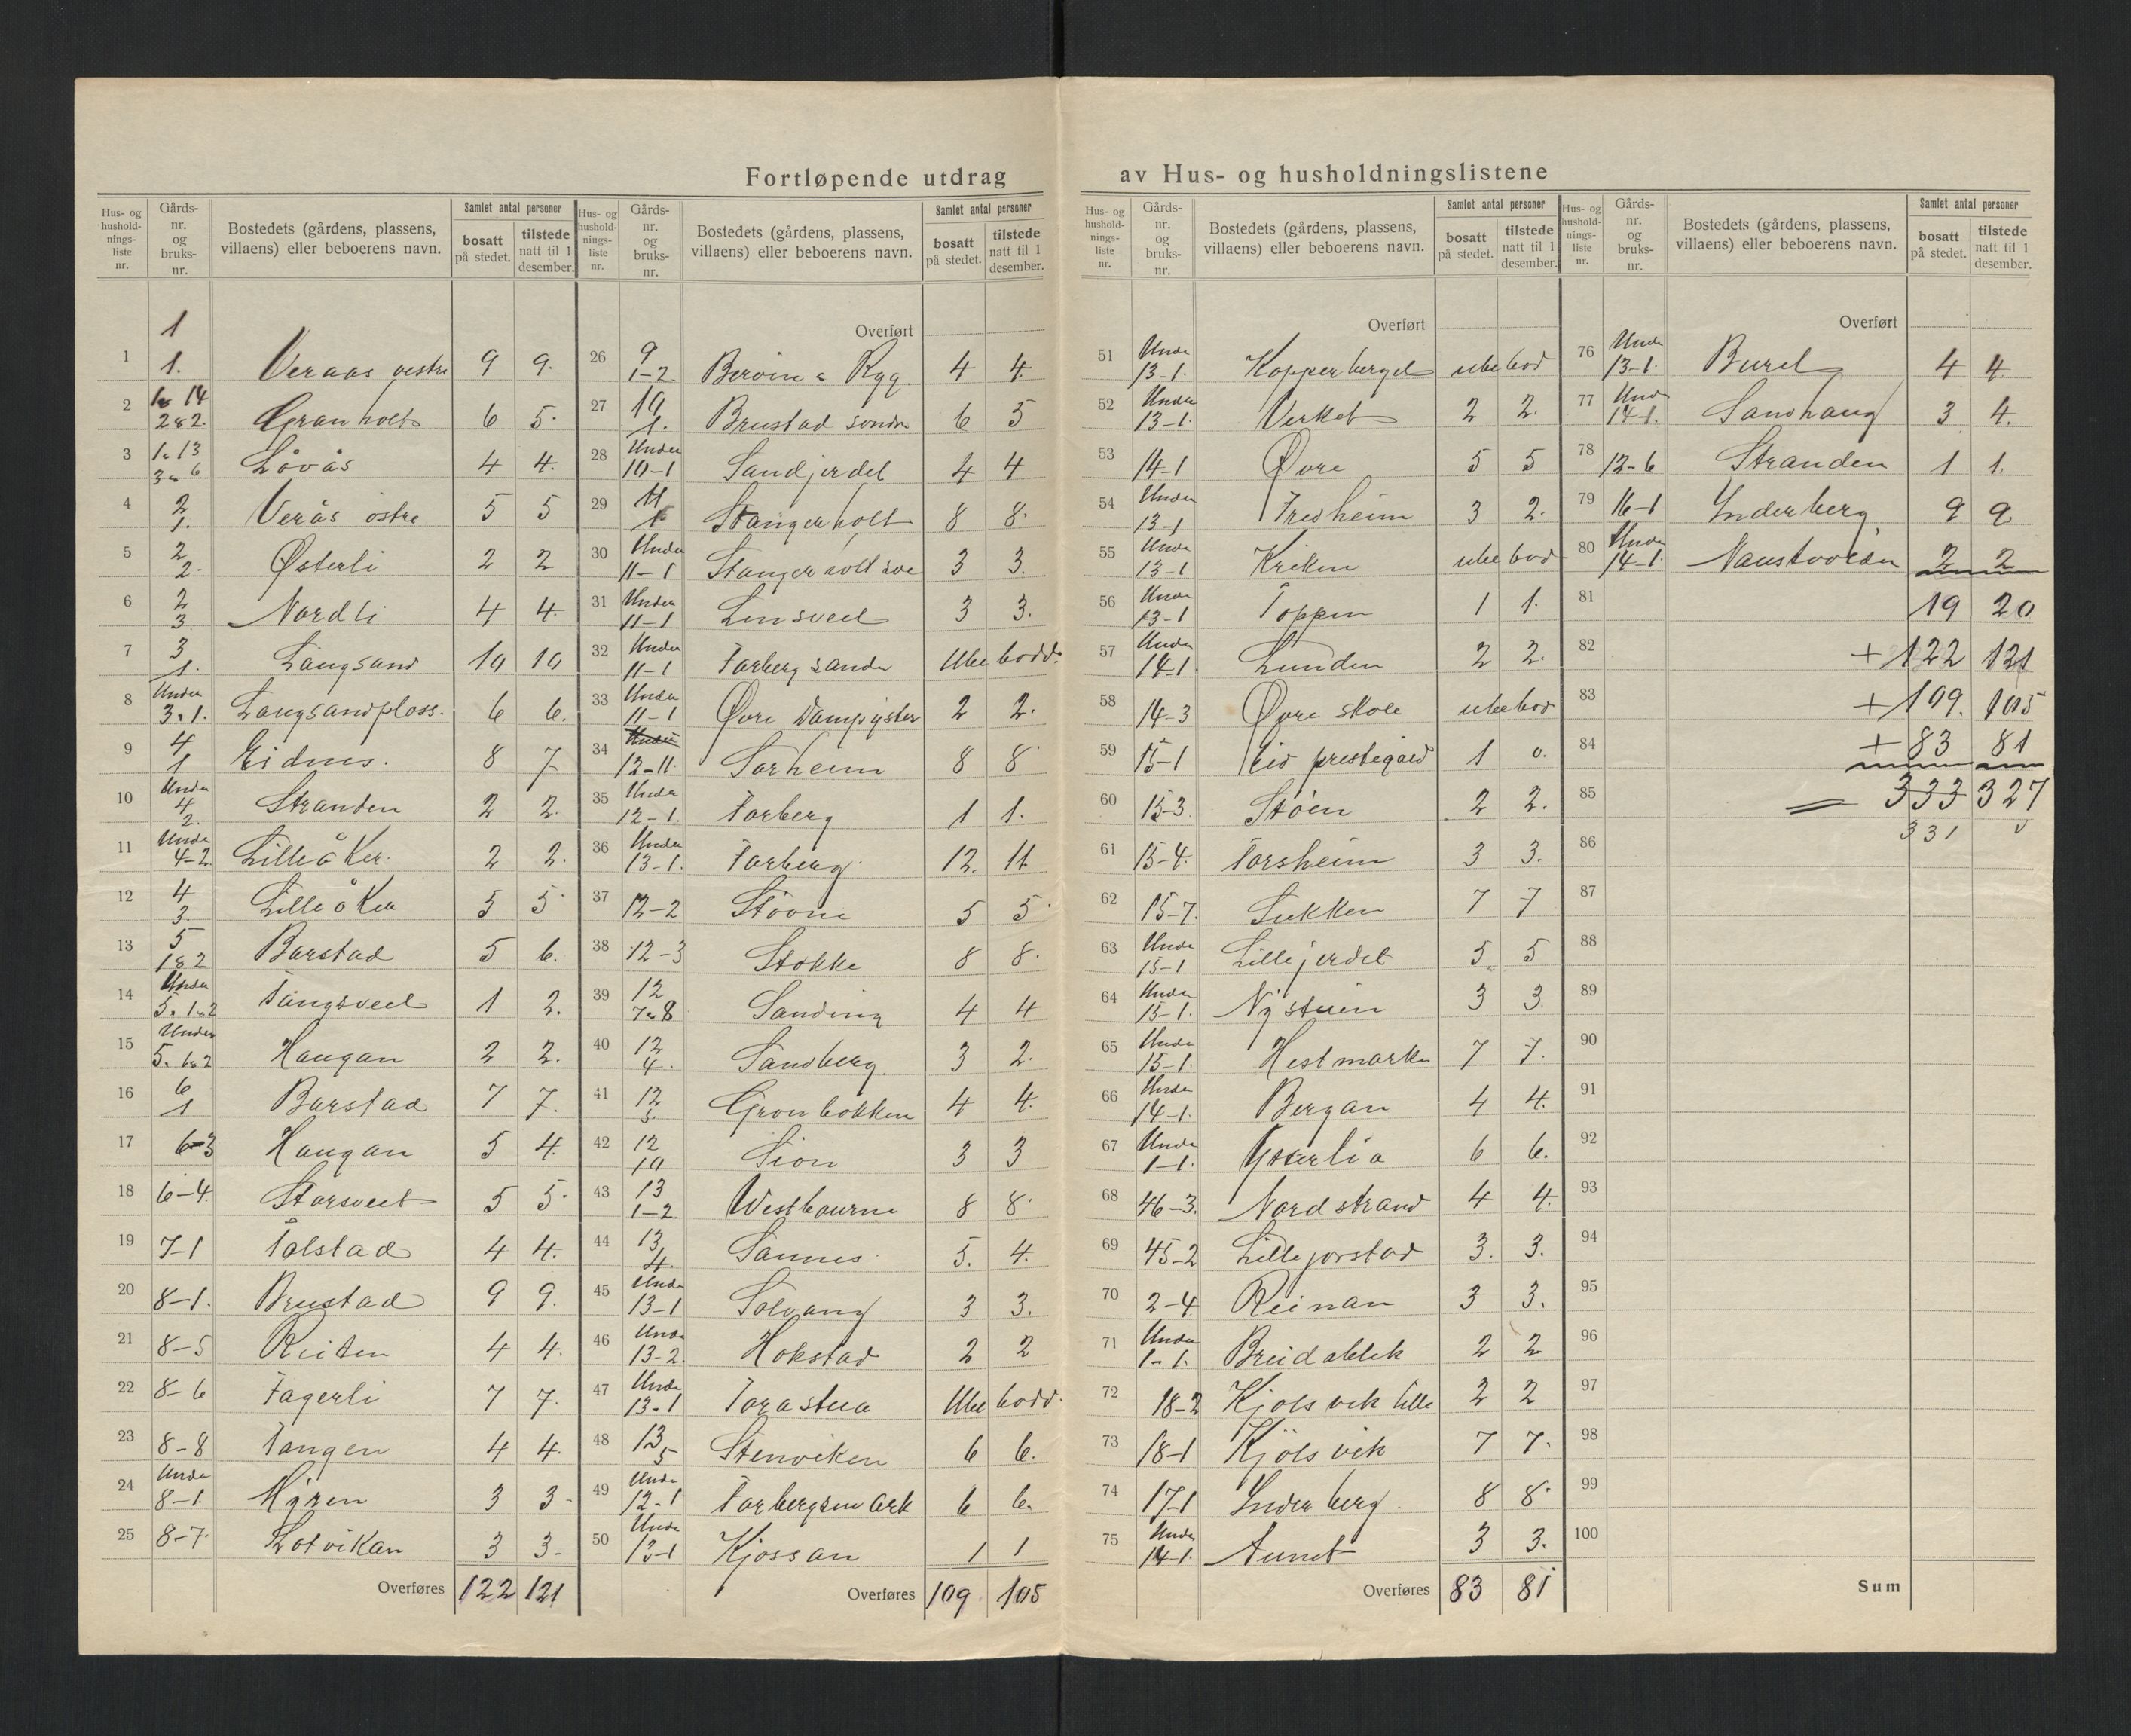 Fortløpende utdrag av Hus- og husholdningslistene
Hus- og hushold- nings- liste nr. | Gårds- nr. og bruks- nr. | Bostedets (gårdens, plassens, villaens) eller beboerens navn. | Samlet antal personer | bosatt på stedet. | tilstede natt til 1 desember.
1 | 1 1. | Veraas vestre | 9 | 9.
2 | 14 2&2. | Granholt | 6 | 5.
3 | 1. 13 3 6 | Lövås | 4 | 4.
4 | 2 1. | Verås östre | 5 | 5
5 | 2 2. | Østerli | 2 | 2
6 | 2 3 | Nordli | 4 | 4.
7 | 3 1. | Langsand | 10 | 10
8 | Under 3.1. | Langsandplass. | 6 | 6.
9 | 4 1 | Eidnes. | 8 | 7
10 | Under 4 2. | Stranden | 2 | 2.
11 | Under 4-2 | Lilleåker. | 2 | 2.
12 | 4 3. | Lilleåker | 5 | 5
13 | 5 1&2 | Barstad | 5 | 6.
14 | Under 5. 1&2 | Tangsveet | 1 | 2.
15 | Under 5. 1&2 | Haugan | 2 | 2.
16 | 6 1 | Barstad | 7 | 7.
17 | 6-3 | Haugan | 5 | 4.
18 | 6-4. | Storsveet | 5 | 5.
19 | 7-1 | Tolstad | 4 | 4.
20 | 8-1. | Brustad | 9 | 9.
21 | 8-5 | Reiten | 4 | 4.
22 | 8-6 | Fagerli | 7 | 7.
23 | 8-8 | Tangen | 4 | 4.
24 | Under 8-1 | Myren | 3 | 3.
25 | 8-7. | Lotvikan | 3 | 3.
Overføres | 122 | 121
Hus- og hushold- nings- liste nr. | Gårds- nr. og bruks- nr. | Bostedets (gårdens, plassens, villaens) eller beboerens navn. | Samlet antal personer | bosatt på stedet. | tilstede natt til 1 desember.
Overført
26 | 9 1-2 | Rygg | 4 | 4.
27 | 10 1. | Brustad söndre | 6 | 5
28 | Under 10-1 | Sandjerdet | 4 | 4
29 | 11 1 | Stangerholt | 8 | 8.
30 | Under 11-1 | Stangerholt | 3 | 3.
31 | Under 11-1 | Linsveet | 3 | 3.
32 | Under 11-1 | Torbergsanden | Ubebodd.
33 | Under 11-1 | Øvre Dampysteri | 2 | 2.
34 | Under 12-11. | Sørheim | 8 | 8
35 | Under 12-1. | Forberg | 1 | 1.
36 | Under 13-1. | Forberg. | 12. | 11
37 | 12-2 | Stövne | 5 | 5
38 | 12-3 | Stokke | 8 | 8.
39 | 12 7&8 | Sanding | 4 | 4
40 | 12 4. | Sandberg. | 3 | 2.
41 | 12 5. | Grönbakken | 4 | 4.
42 | 12 10 | Sion | 3 | 3
43 | 13 1-2. | Westbourne | 8 | 8.
44 | 13 4. | Sannes. | 5. | 4.
45 | Under 13-1 | Solvang | 3 | 3.
46 | Under 13-2. | Hokstad | 2 | 2
47 | Under 13-1 | Torastua | Ubebodd.
48 | 13 5 | Stenviken | 6 | 6.
49 | Under 12-1 | | 6 | 6.
50 | Under 13-1 | Kjössan | 1 | 1
Overføres | 109 | 105
Hus- og hushold- nings- liste nr. | Gårds- nr. og bruks- nr. | Bostedets (gårdens, plassens, villaens) eller beboerens navn. | Samlet antal personer | bosatt på stedet. | tilstede natt til 1 desember.
Overført
51 | Under 13-1. | Kopperberget | ubebod
52 | Under 13-1. | Verket | 2 | 2.
53 | 14-1 | Øvre | 5 | 5
54 | Under 13-1 | Fredheim | 3 | 2.
55 | Under 13-1 | Kriken | ubebod
56 | Under 13-1 | Toppen | 1 | 1.
57 | Under 14-1. | Lunden | 2 | 2.
58 | 14-3 | Øvre skole | ubebod
59 | 15-1 | Eid prestegård | 1 | 0.
60 | 15-3 | Stöen | 2 | 2.
61 | 15-4. | Torsheim | 3 | 3.
62 | 15-7. | Sukken | 7 | 7
63 | Under 15-1 | Lillejerdet | 5 | 5
64 | Under 15-1. | Nystuen | 3 | 3.
65 | Under 15-1. | Hestmarken | 7 | 7.
66 | Under 14-1. | Bergan | 4 | 4.
67 | Under 1-1. | Ysterlia | 6 | 6.
68 | 46-3. | Nordstrand | 4 | 4.
69 | 45-2 | Lillejorstad | 3. | 3.
70 | 2-4 | Reinan | 3 | 3.
71 | Under 1-1. | Breidablik | 2 | 2
72 | 18-2 | Kjölsvik lille | 2 | 2
73 | 18-1 | Kjölsvik | 7 | 7.
74 | 17-1 | Ynderberg. | 8 | 8.
75 | Under 14-1. | Aunet | 3 | 3.
Overføres | 83 | 81
Hus- og hushold- nings- liste nr. | Gårds- nr. og bruks- nr. | Bostedets (gårdens, plassens, villaens) eller beboerens navn. | Samlet antal personer | bosatt på stedet. | tilstede natt til 1 desember.
Overført
76 | Under 13-1. | Buret | 4 | 4.
77 | Under 14-1. | Sandhaug | 3 | 4.
78 | 12-6 | Stranden | 1 | 1.
79 | 16-1 | Ynderberg | 9 | 9
80 | Under 14-1. | Naustvolden | 2 | 2
81 | 19 | 20
82 | + 122 | 121
83 | + 109. | 105
84 | + 83 | 81
85 | = 333 | 327
86 | 331
87
88
89
90
91
92
93
94
95
96
97
98
99
100
Sum